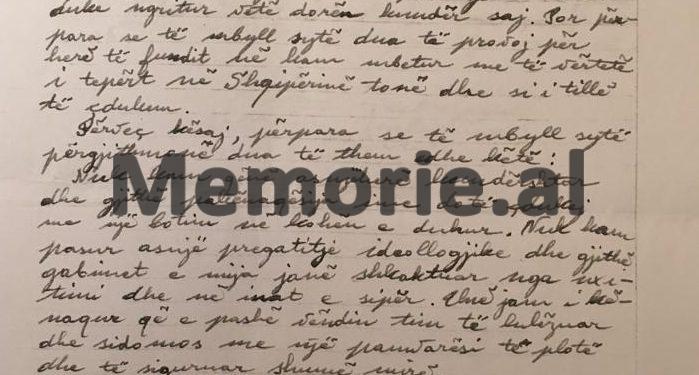 duke ngritur vetë dorën kundër saj. Por për-
para se të mbyll sytë dua të provoj për
herë të fundit në kam mbetur me të vërtetë
i tepërt në Shqipërinë tonë dhe si i tillë
të çdukem.
Përveç kësaj, përpara se të mbyll sytë
përgjithmonë dua të them edhe këtë:
Nuk kam qënë asnjëherë kundërshtar
dhe gjithë
me një botim në kohën e duhur. Nuk kam
pasur asnjë pregatitje ideollogjike dhe gjithë
gabimet e mija janë shkaktuar nga nxi-
timi dhe në inat e sipër. Unë jam i kë-
naqur që e pashë vëndin tim të lulëzuar
dhe sidomos me një pamvarësi të plotë
dhe të siguruar shumë mirë
Memorie.al